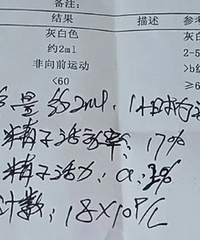 备注:
结果 描述 参考
灰白色 灰白
约2ml 2-5
非向前运动
<60 ≥6
量 约2ml.
精子活动率: 17%
精子活力: a:
计数: 18×10⁹/L